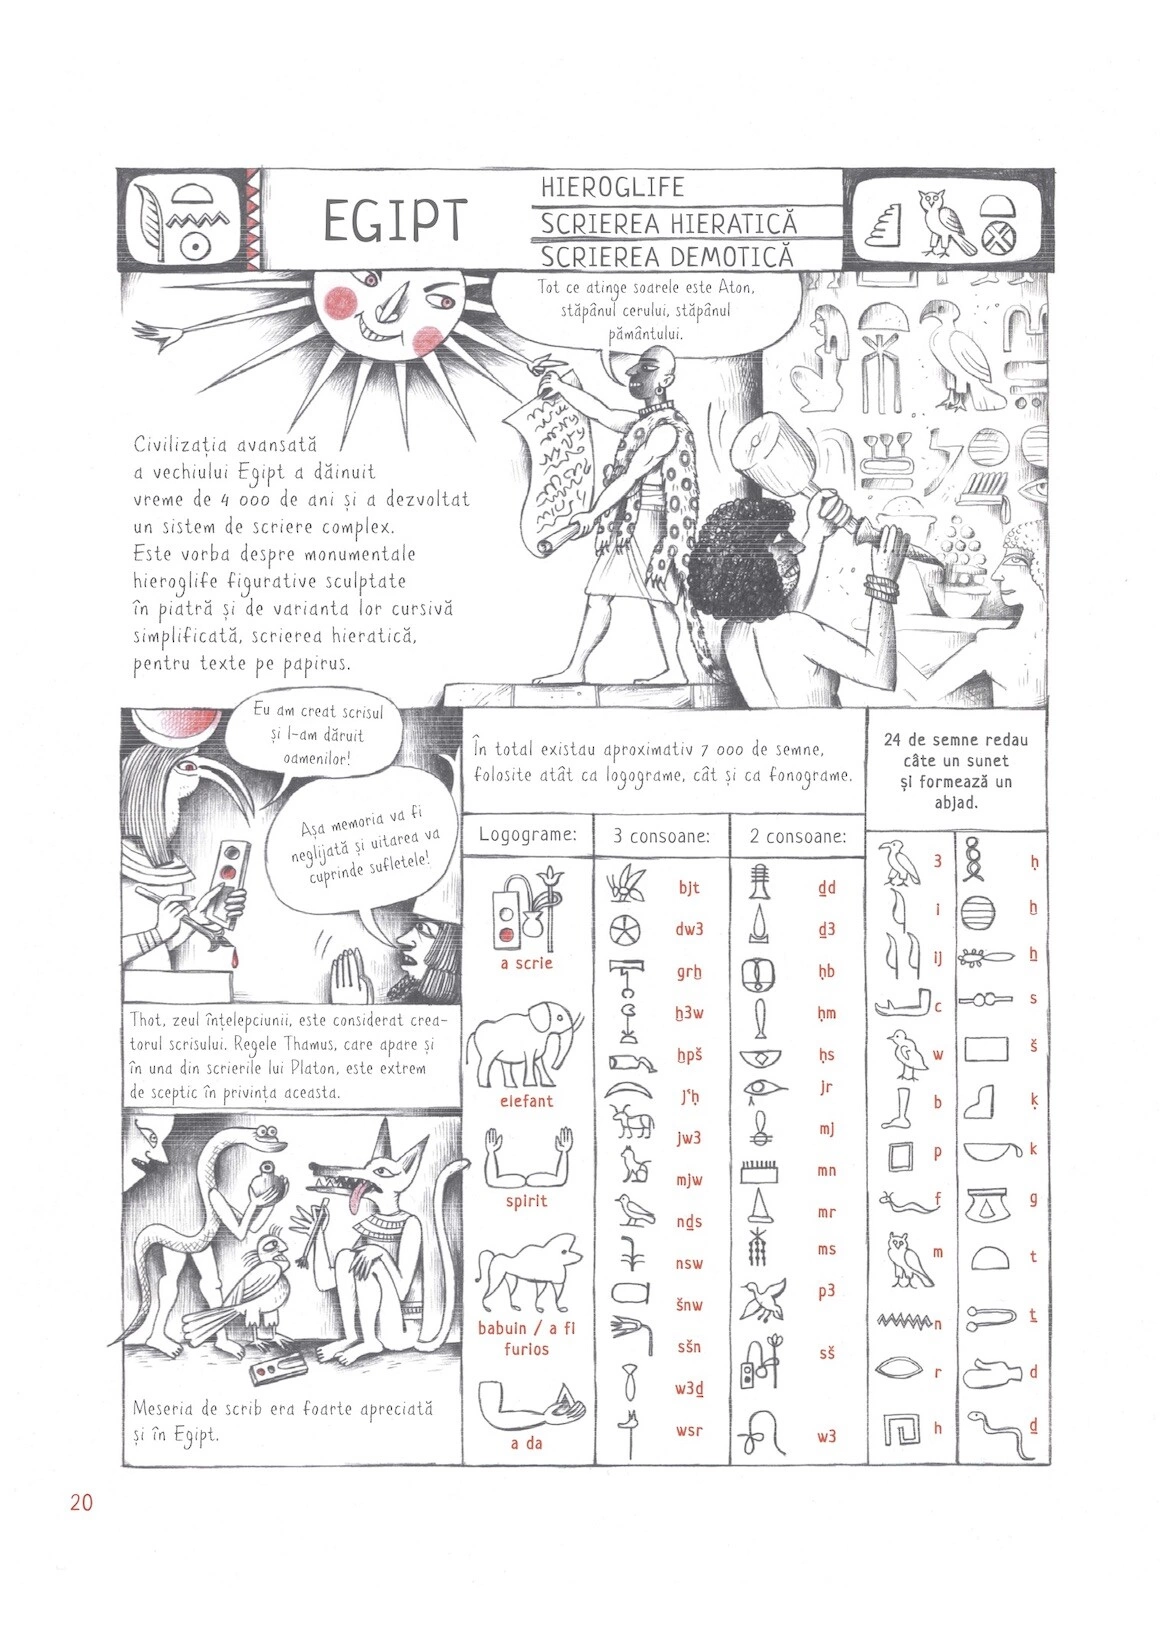 EGIPT
HIEROGLIFE
SCRIEREA HIERATICĂ
SCRIEREA DEMOTICĂ
Tot ce atinge soarele este Aton,
stăpânul cerului, stăpânul
pământului.
Civilizația avansată
a vechiului Egipt a dăinuit
vreme de 4 000 de ani și a dezvoltat
un sistem de scriere complex.
Este vorba despre monumentale
hieroglife figurative sculptate
în piatră și de varianta lor cursivă
simplificată, scrierea hieratică,
pentru texte pe papirus.
Eu am creat scrisul
și l-am dăruit
oamenilor!
Așa memoria va fi
neglijată și uitarea va
cuprinde sufletele!
Thot, zeul înțelepciunii, este considerat crea-
torul scrisului. Regele Thamus, care apare și
în una din scrierile lui Platon, este extrem
de sceptic în privința aceasta.
Meseria de scrib era foarte apreciată
și în Egipt.
În total existau aproximativ 7 000 de semne,
folosite atât ca logograme, cât și ca fonograme.
Logograme:
a scrie
elefant
spirit
babuin / a fi
furios
a da
3 consoane:
bjt
dw3
grḥ
ẖ3w
ḫpš
jʿḥ
jw3
mjw
nḏs
nsw
šnw
sšn
w3ḏ
wsr
2 consoane:
ḏd
ḏ3
ḥb
ḥm
ḥs
jr
mj
mn
mr
ms
p3
sš
w3
24 de semne redau
câte un sunet
și formează un
abjad.
3
i
ij
c
w
b
p
f
m
n
r
h
ḥ
ḫ
ẖ
s
š
ḳ
k
g
t
ṯ
d
ḏ
20